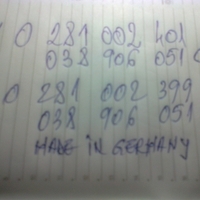 0 281 002 401
038 906 051 C
0 281 002 399
038 906 051
MADE IN GERMANY